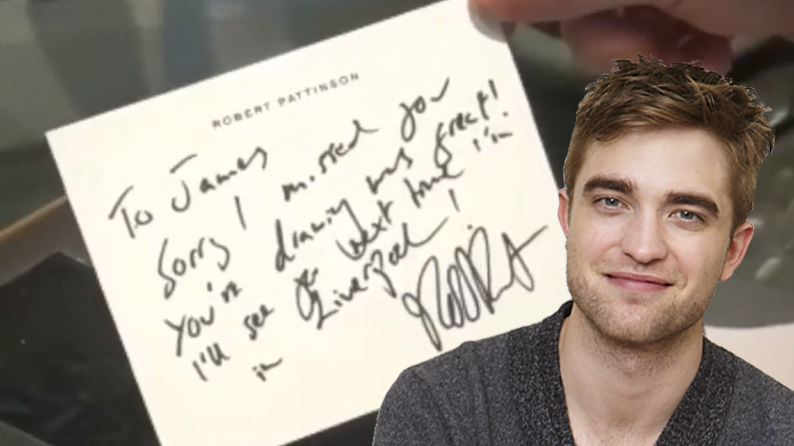 ROBERT PATTINSON
To James
Sorry I missed you
You're drawing was great!
I'll see next time I'm
in Liverpool!